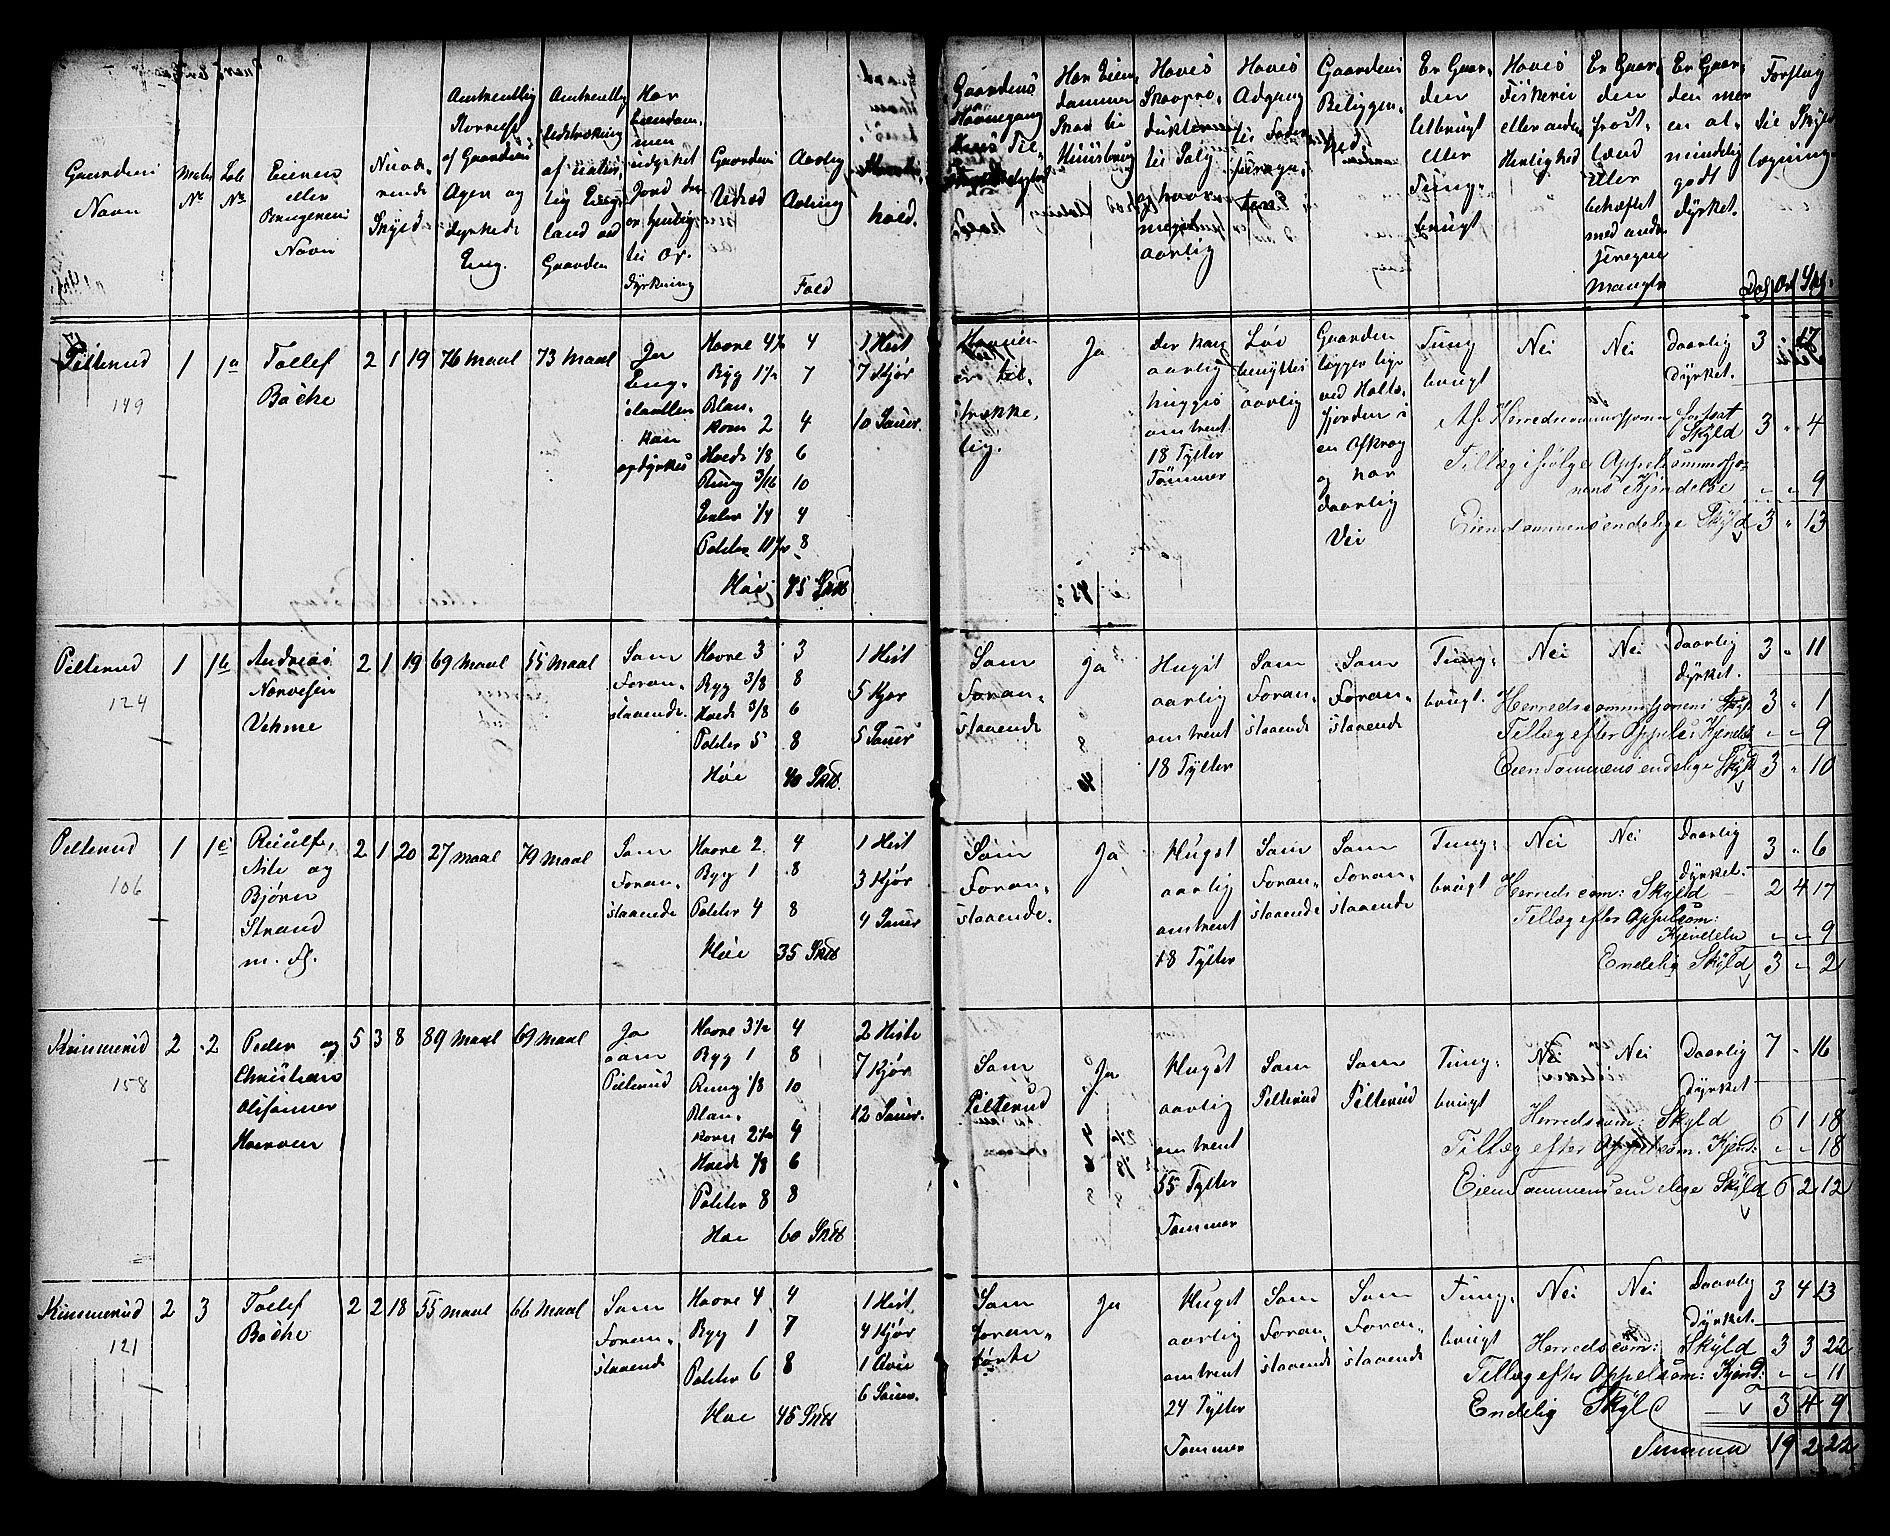 Gaardens
Navn
Matr
No
Løb
No
Eierens
eller
Brugerens
Navn
Nuvæ-
rende
Skyld
Omtrentlig
Størrelse
af Gaardens
Ager og
dyrkede
Eng.
Omtrentlig
Udstrækning
af natur-
lig Eng-
land ved
Gaarden
Har
Eiendom-
men
udyrket
Jord der
er tjenlig
til Op-
dyrkning
Gaardens
Udsæd
Aarlig
Avling
Fold
hold.
Gaardens
Havnegang
Har Eien-
dommen
Skov til
Huusbrug
Haves
Skovpro-
dukter
til Salg
og hvor
meget
aarlig
Haves
Adgang
til Foder
Gaardens
Beliggen-
hed
Er Gaar-
den
letbrugt
eller
Tung-
brugt
Haves
Fiskeri
eller anden
Herlighed
Er Gaar-
den
frost-
lænd
eller
behæftet
med andre
Mangler
Er Gaar-
den mer
en al-
mindelig
godt
dyrket.
Forslag
til Skyld-
lægning
Dol Ort Sk.
Pilterud 1 1a Tollef 2 1 19 76 Maal 73 Maal
149
Bache
Ja
Eng-
slaatten
kan
opdyrkes
Havre 4½ 4
Byg 1½ 7
Blan-
korn 2 4
Hvede 1/8 6
Rug 3/16 10
Erter 1/4 4
Poteter 11½ 8
Høe 75 Sk℔
1 Hest
7 Kjør
10 Sauer.
Havnen
er til-
trække-
lig.
Ja
der kan
aarlig
hugges
omtrent
18 Tylter
Tømmer
Løv
benyttes
aarlig
Gaarden
ligger lige
ved Holts-
fjorden i
en Afkrog
og har
daarlig
Vei
Tung
brugt
Nei Nei
daarlig
dyrket.
3 " 17
Af Herredscommissionen fastsat
Skyld 3 " 4
Tillæg ifølge Appelcommissjo-
nens Kjendelse " " 9
Eiendommens endelige Skyld 3 " 13
Pilterud 1 1b Andreas 2 1 19 69 Maal 55 Maal
124
Narvesen
Vehme
Som
Foran-
staaende.
Havre 3 3
Byg 3/8 8
Hvede 3/8 6
Poteter 5 8
Høe 40 Sk℔.
1 Hest
5 Kjør
5 Sauer
Som
Foran-
staaende
Ja
Hugst
aarlig
omtrent
18 Tylter
Som
Foran-
staaende
Som
Foran-
staaende
Tung-
brugt.
Nei Nei
Daarlig
dyrket.
3 " 11
Herredscommissjonens Skyld 3 " 1
Tillæg efter Appels Kjendel " " 9
Eiendommens endelige Skyld 3 " 10
Pilterud 1 1c 2 1 20 27 Maal 79 Maal
106
Nils og
Bjørn
Strand
m. Fl.
Som
Foran-
staaende
Havre 2 4
Byg 1 8
Poteter 4 8
Høe 35 Sk℔
1 Hest
3 Kjør
4 Sauer
Som
Foran-
staaende.
Ja
Hugst
aarlig
omtrent
18 Tylter
Som
Foran-
staaende
Som
Foran-
staaende
Tung-
brugt
Nei Nei
Daarlig
dyrket.
3 " 6
Herredscom: Skyld 2 4 17
Tillæg efter Appelcom:
Kjendelse " " 9
Endelig Skyld 3 " 2
Kinnerud 2 2 Peder og 5 3 8 89 Maal 69 Maal
158
Christian
Ja
som
Pilterud
Havre 3½ 4
Byg 1 8
Rug 1/8 10
Blan-
korn 2½ 4
Hvede 1/8 6
Poteter 8 8
Høe 60 Sk℔
2 Heste
7 Kjør
12 Sauer.
Som
Pilterud
Ja
Hugst
aarlig
omtrent
55 Tylter
Tømmer
Som
Pilterud
Som
Pilterud
Tung-
brugt
Nei Nei
Daarlig
dyrket
7 " 16
Herredscom: Skyld 6 1 18
Tillæg efter Appelcom. Kjend: " " 18
Eiendommens endelige Skyld 6 2 12
Kinnerud 2 3 Tollef 2 2 18 55 Maal 66 Maal
121
Bache
Som
Foran-
staaende
Havre 4 4
Byg 1 7
Poteter 6 8
Høe 45 Sk℔
1 Hest
4 Kjør
1 Qvie
6 Sauer.
Som
foran-
førte
Ja
Hugst
aarlig
omtrent
24 Tylter
Tømmer
Som
Foran-
staaende
Som
Foran-
staaende
Tung-
brugt
Nei Nei
Daarlig
dyrket.
3 4 13
Herredscom: Skyld 3 3 22
Tillæg efter Appelcom: Kjend: " " 11
Endelig Skyld 3 4 9
Summa 19 2 22